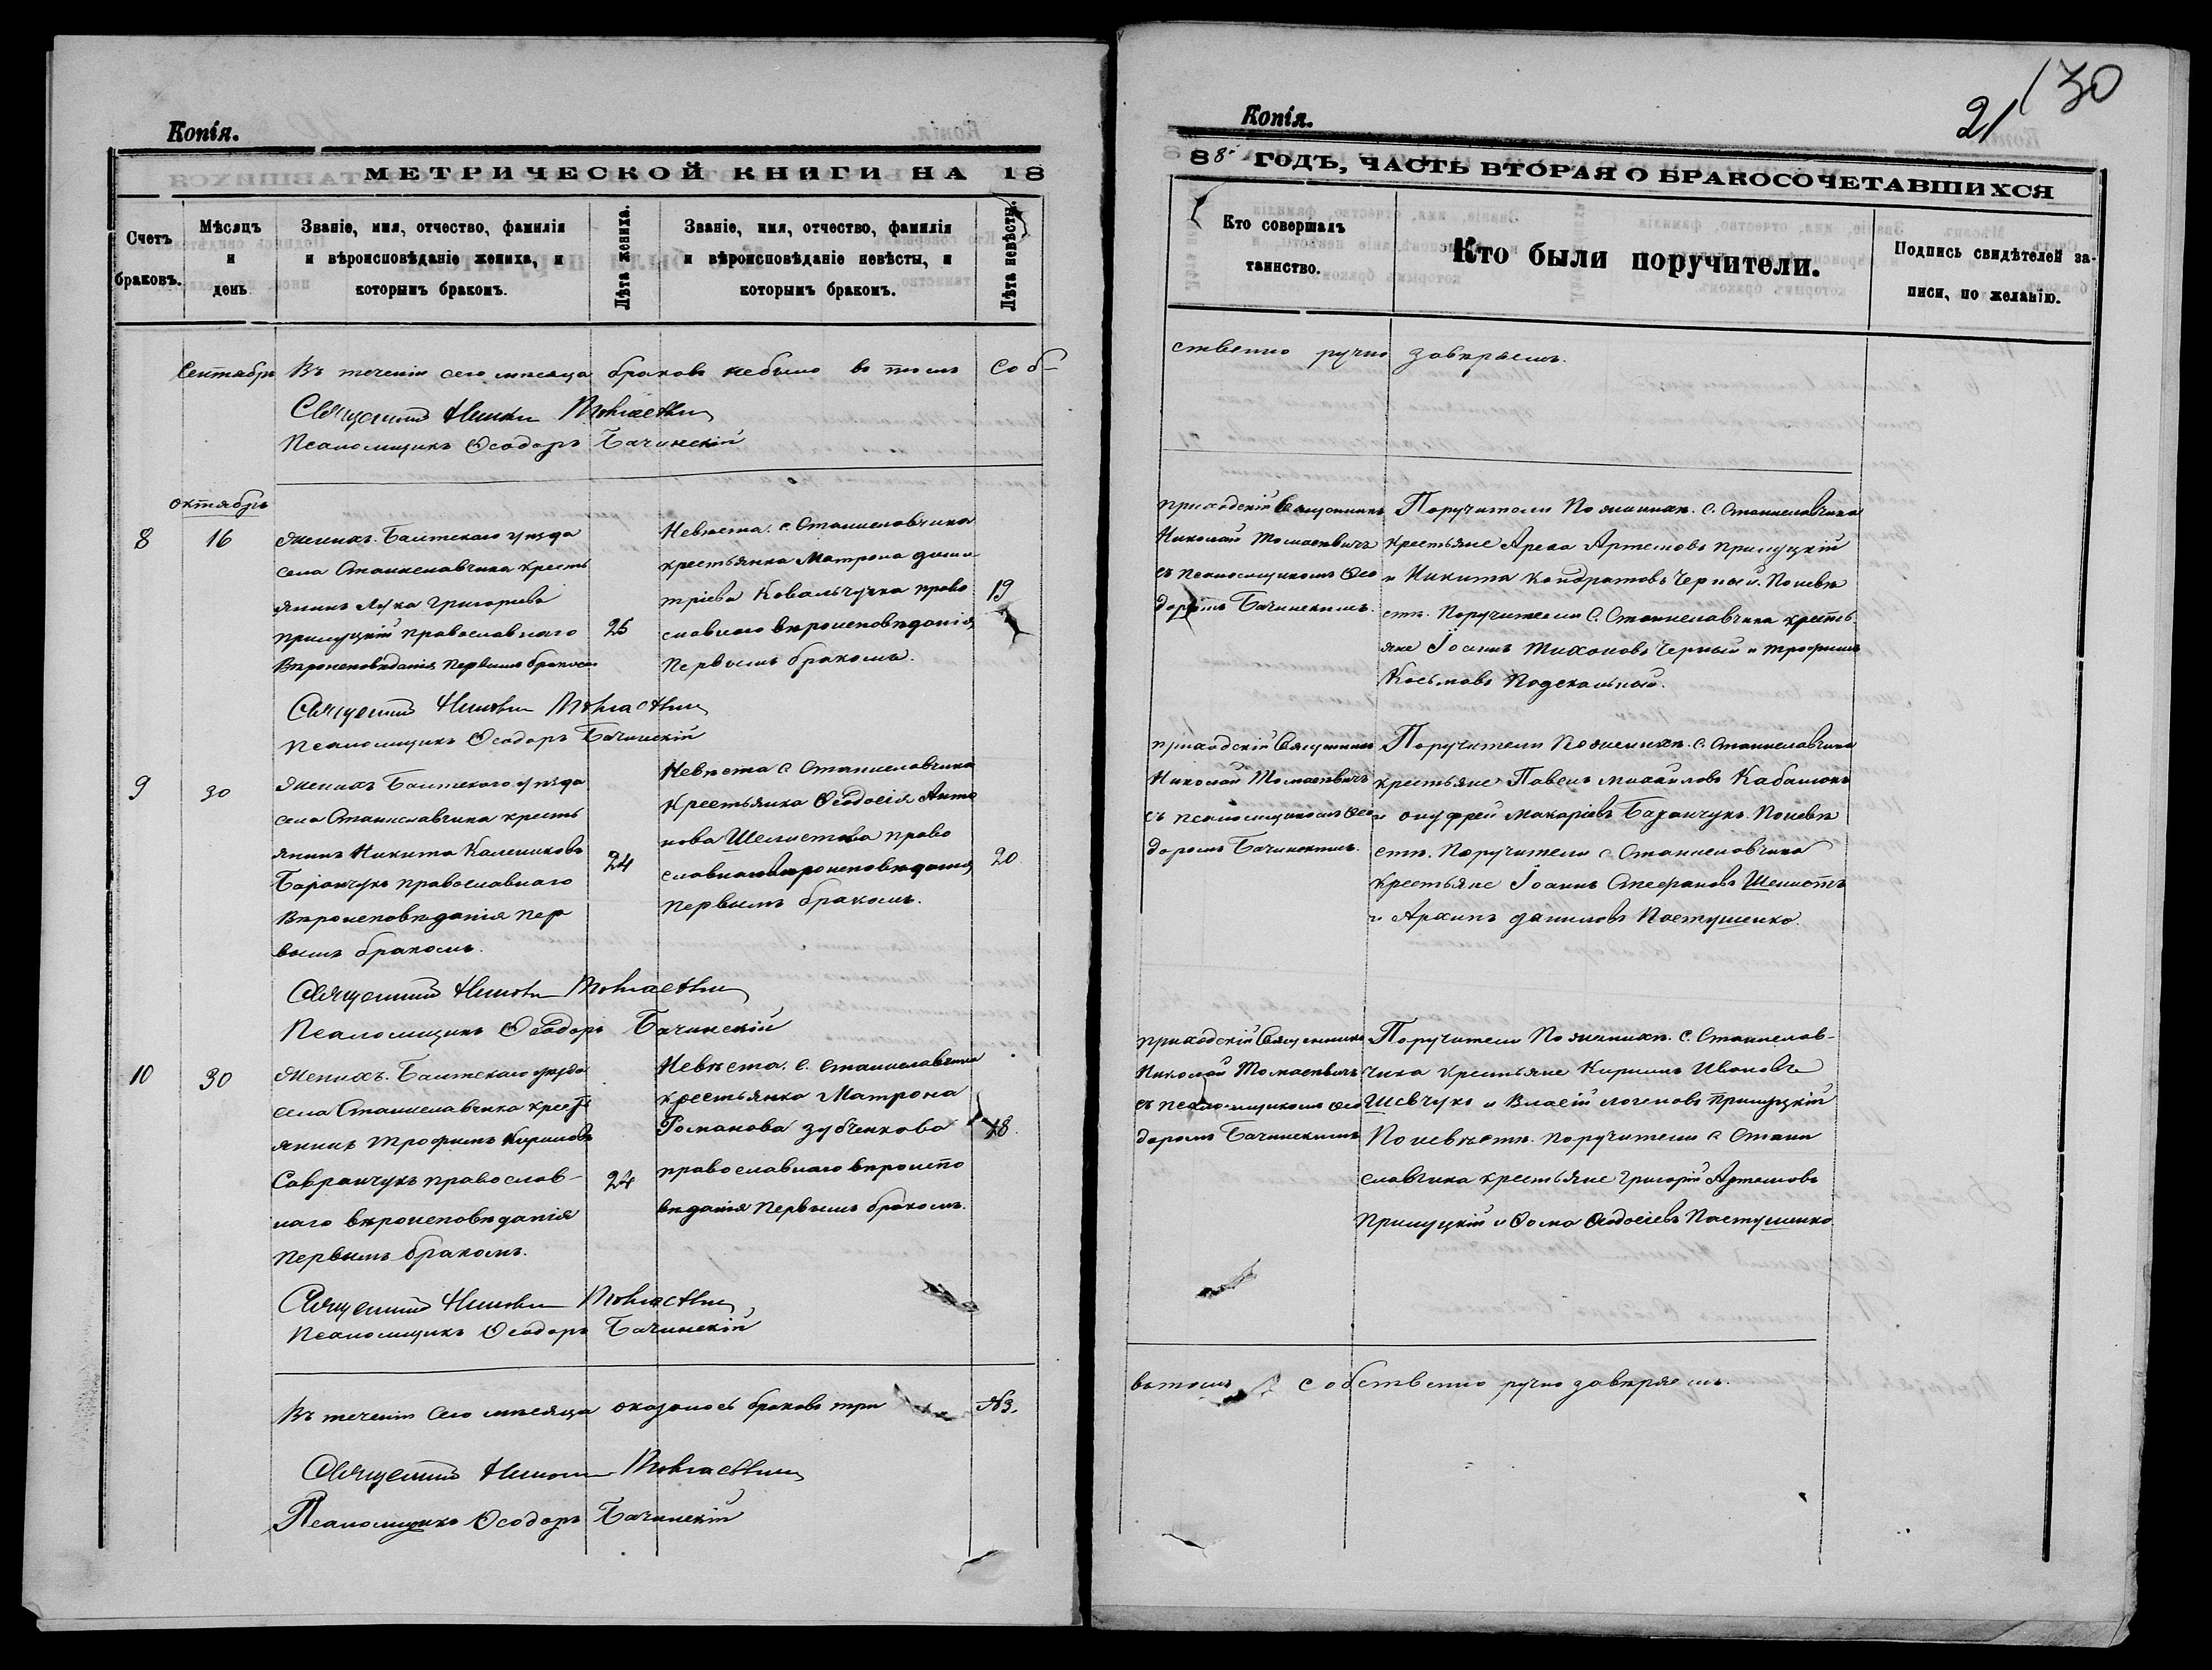 Копія.
МЕТРИЧЕСКОЙ КНИГИ НА 18
Счетъ браковъ.
Мѣсяцъ и день
Званіе, имя, отчество, фамилія и вѣроисповѣданіе жениха, и которымъ бракомъ.
Лѣта жениха.
Званіе, имя, отчество, фамилія и вѣроисповѣданіе невѣсты, и которымъ бракомъ.
Лѣта невѣсты.
Сентябрь Въ теченіи сего мѣсяца браковъ небыло въ томъ соб-
Священникъ Николай
Псаломщикъ Ѳеодоръ Бачинскій
октябрь
8 16
Женихъ. Балтскаго уѣзда
села Станиславчика кресть
янинъ Лука Григорьевъ
Прилуцкій православнаго
Вѣроисповѣданія первымъ бракомъ
25
Невѣста. с. Станиславчика
крестьянка Матрона Дими
тріева Ковальчучка право
славнаго вѣроисповѣданія,
Первымъ бракомъ.
19
Священникъ Николай
Псаломщикъ Ѳеодоръ Бачинскій
9 30
Женихъ Балтскаго уѣзда
села Станиславчика кресть
янинъ Никита Калениковъ
православнаго
Вѣроисповѣданія пер
вымъ бракомъ.
24
Невѣста с Станиславчика
Крестьянка Ѳеодосія Анто
нова Шелистова право
славнаго вѣроисповѣданія,
первымъ бракомъ.
20.
Священникъ Николай
Псаломщикъ Ѳеодоръ Бачинскій
10 30
Женихъ. Балтскаго уѣзда
села Станиславчика крест
янинъ Трофимъ Кириловъ
Савранчукъ православ-
наго вѣроисповѣданія
Первымъ бракомъ.
24
Невѣста. с. Станиславчика
крестьянка Матрона
Романова Зубченкова
православнаго вѣроиспо
вѣданія Первымъ бракомъ.
18.
Священникъ Николай
Псаломщикъ Ѳеодоръ Бачинскій
Въ теченіи Сего мѣсяца оказалось браковъ три №3.
Священникъ Николай
Псаломщикъ Ѳеодоръ Бачинскій
21 30
Копія.
88 ГОДЪ, ЧАСТЬ ВТОРАЯ О БРАКОСОЧЕТАВШИХСЯ
Кто совершалъ таинство.
Кто были поручители.
Подпись свидѣтелей записи, по желанію.
ственно ручно завѣряемъ.
приходскій Священникъ
Николай
съ псаломщикомъ Ѳео
доромъ Бачинскимъ.
Поручители По женихѣ. с. Станиславчика
крестьяне Артемовъ Прилуцкій
и Никита Кондратовъ Черный. По невѣ
стѣ. Поручители С. Станиславчика кресть
яне Іоаннъ Тихоновъ Черный и Трофимъ
Косьмовъ Подскальный.
приходскій Священникъ
Николай
съ псаломщикомъ Ѳео
доромъ Бачинскимъ.
Поручители По женихѣ. с. Станиславчика
крестьяне Павелъ Михайловъ Кабалюкъ
и онуфрей Макаріевъ По невѣ
стѣ. Поручители с Станиславчика
крестьяне Іоаннъ Стефановъ Шелистъ
и Архипъ Даниловъ Пастушенко.
приходскій Священникъ
Николай
съ псаломщикомъ Ѳео
доромъ Бачинскимъ
Поручители По женихѣ. С. Станислав-
чика крестьяне Кирилъ Ивановъ
Шевчукъ и Власій Логиновъ Прилуцкій
По невѣстѣ. поручители с Стани
славчика крестьяне Григорій Артемовъ
Прилуцкій и Ѳома Ѳеодосіевъ Пастушенко
вътомъ собственно ручно завѣряемъ.